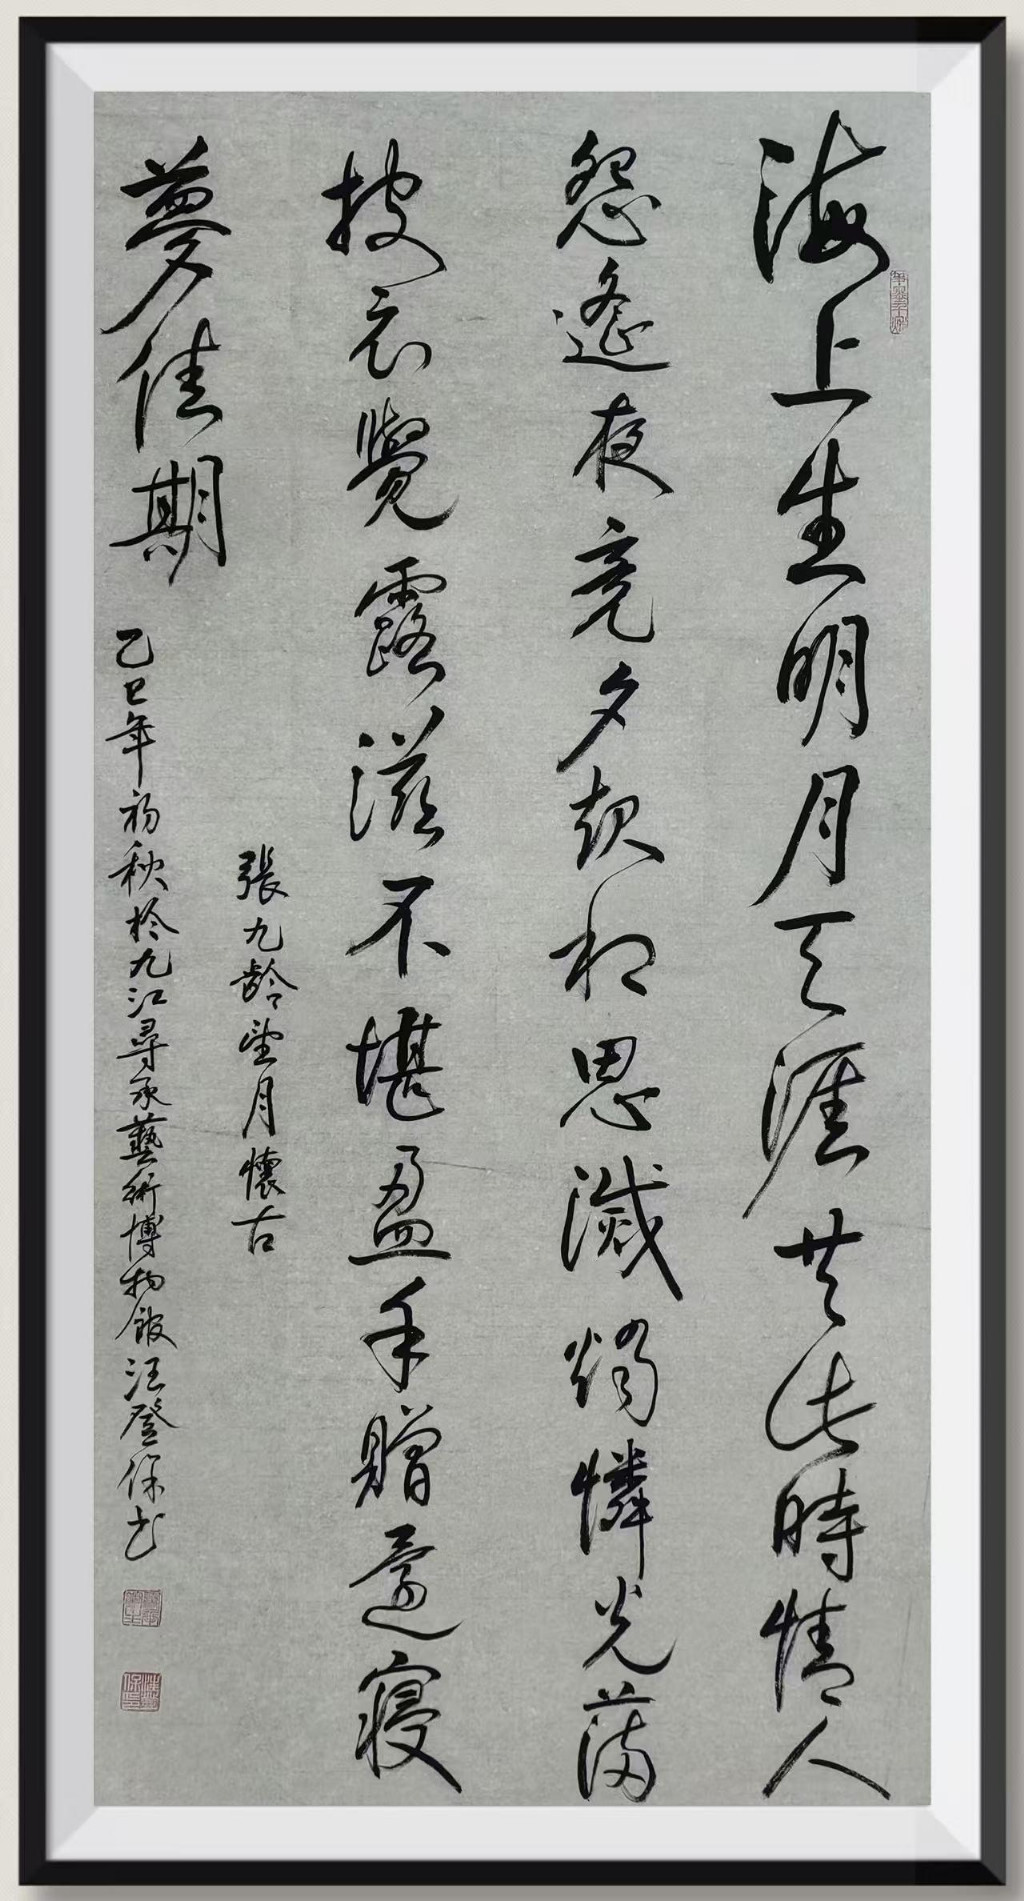 海上生明月天涯共此時情人
怨遙夜竞夕起相思滅燭憐光滿
披衣覺露滋不堪盈手贈還寝
夢佳期
張九齡望月懷古
乙巳年初秋於九江尋承藝術博物館汪登保书